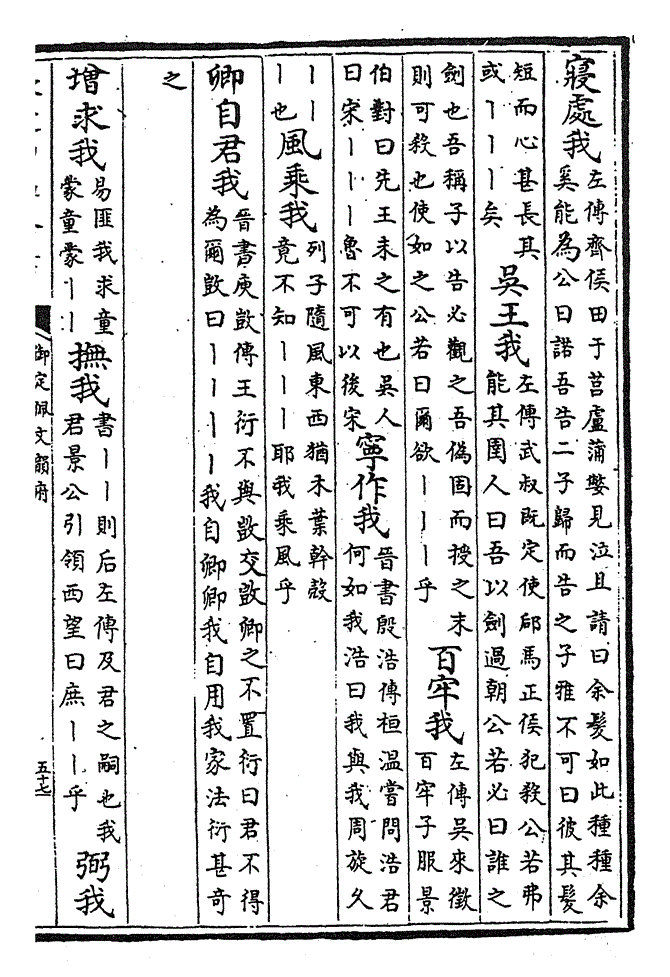 寢處我左傳齊侯田于莒盧蒲嫳見泣且請曰余髮如此種種余奚能為公曰諾吾告二子歸而告之子雅不可曰彼其髮
短而心甚長其或丨丨丨矣吳王我左傳武叔既定使郈馬正侯犯殺公若弗能其圉人曰吾以劍過朝公若必曰誰之
劍也吾稱子以告必觀之吾偽固而授之末則可殺也使如之公若曰爾欲丨丨丨乎百牢我左傳吳來徵百牢子服景
伯對曰先王未之有也吳人曰宋丨丨丨魯不可以後宋寧作我晉書殷浩傳桓溫嘗問浩君何如我浩曰我與我周旋久
丨丨丨也風乘我列子隨風東西猶木葉幹殼竟不知丨丨丨耶我乘風乎
卿自君我晉書庾敳傳王衍不與敳交敳卿之不置衍曰君不得為爾敳曰丨丨丨丨我自卿卿我自用我家法衍甚奇
之
增求我易匪我求童蒙童蒙丨丨撫我書丨丨則后左傳及君之嗣也我君景公引領西望曰庶丨丨乎弼我
御定佩文韻府
五十七